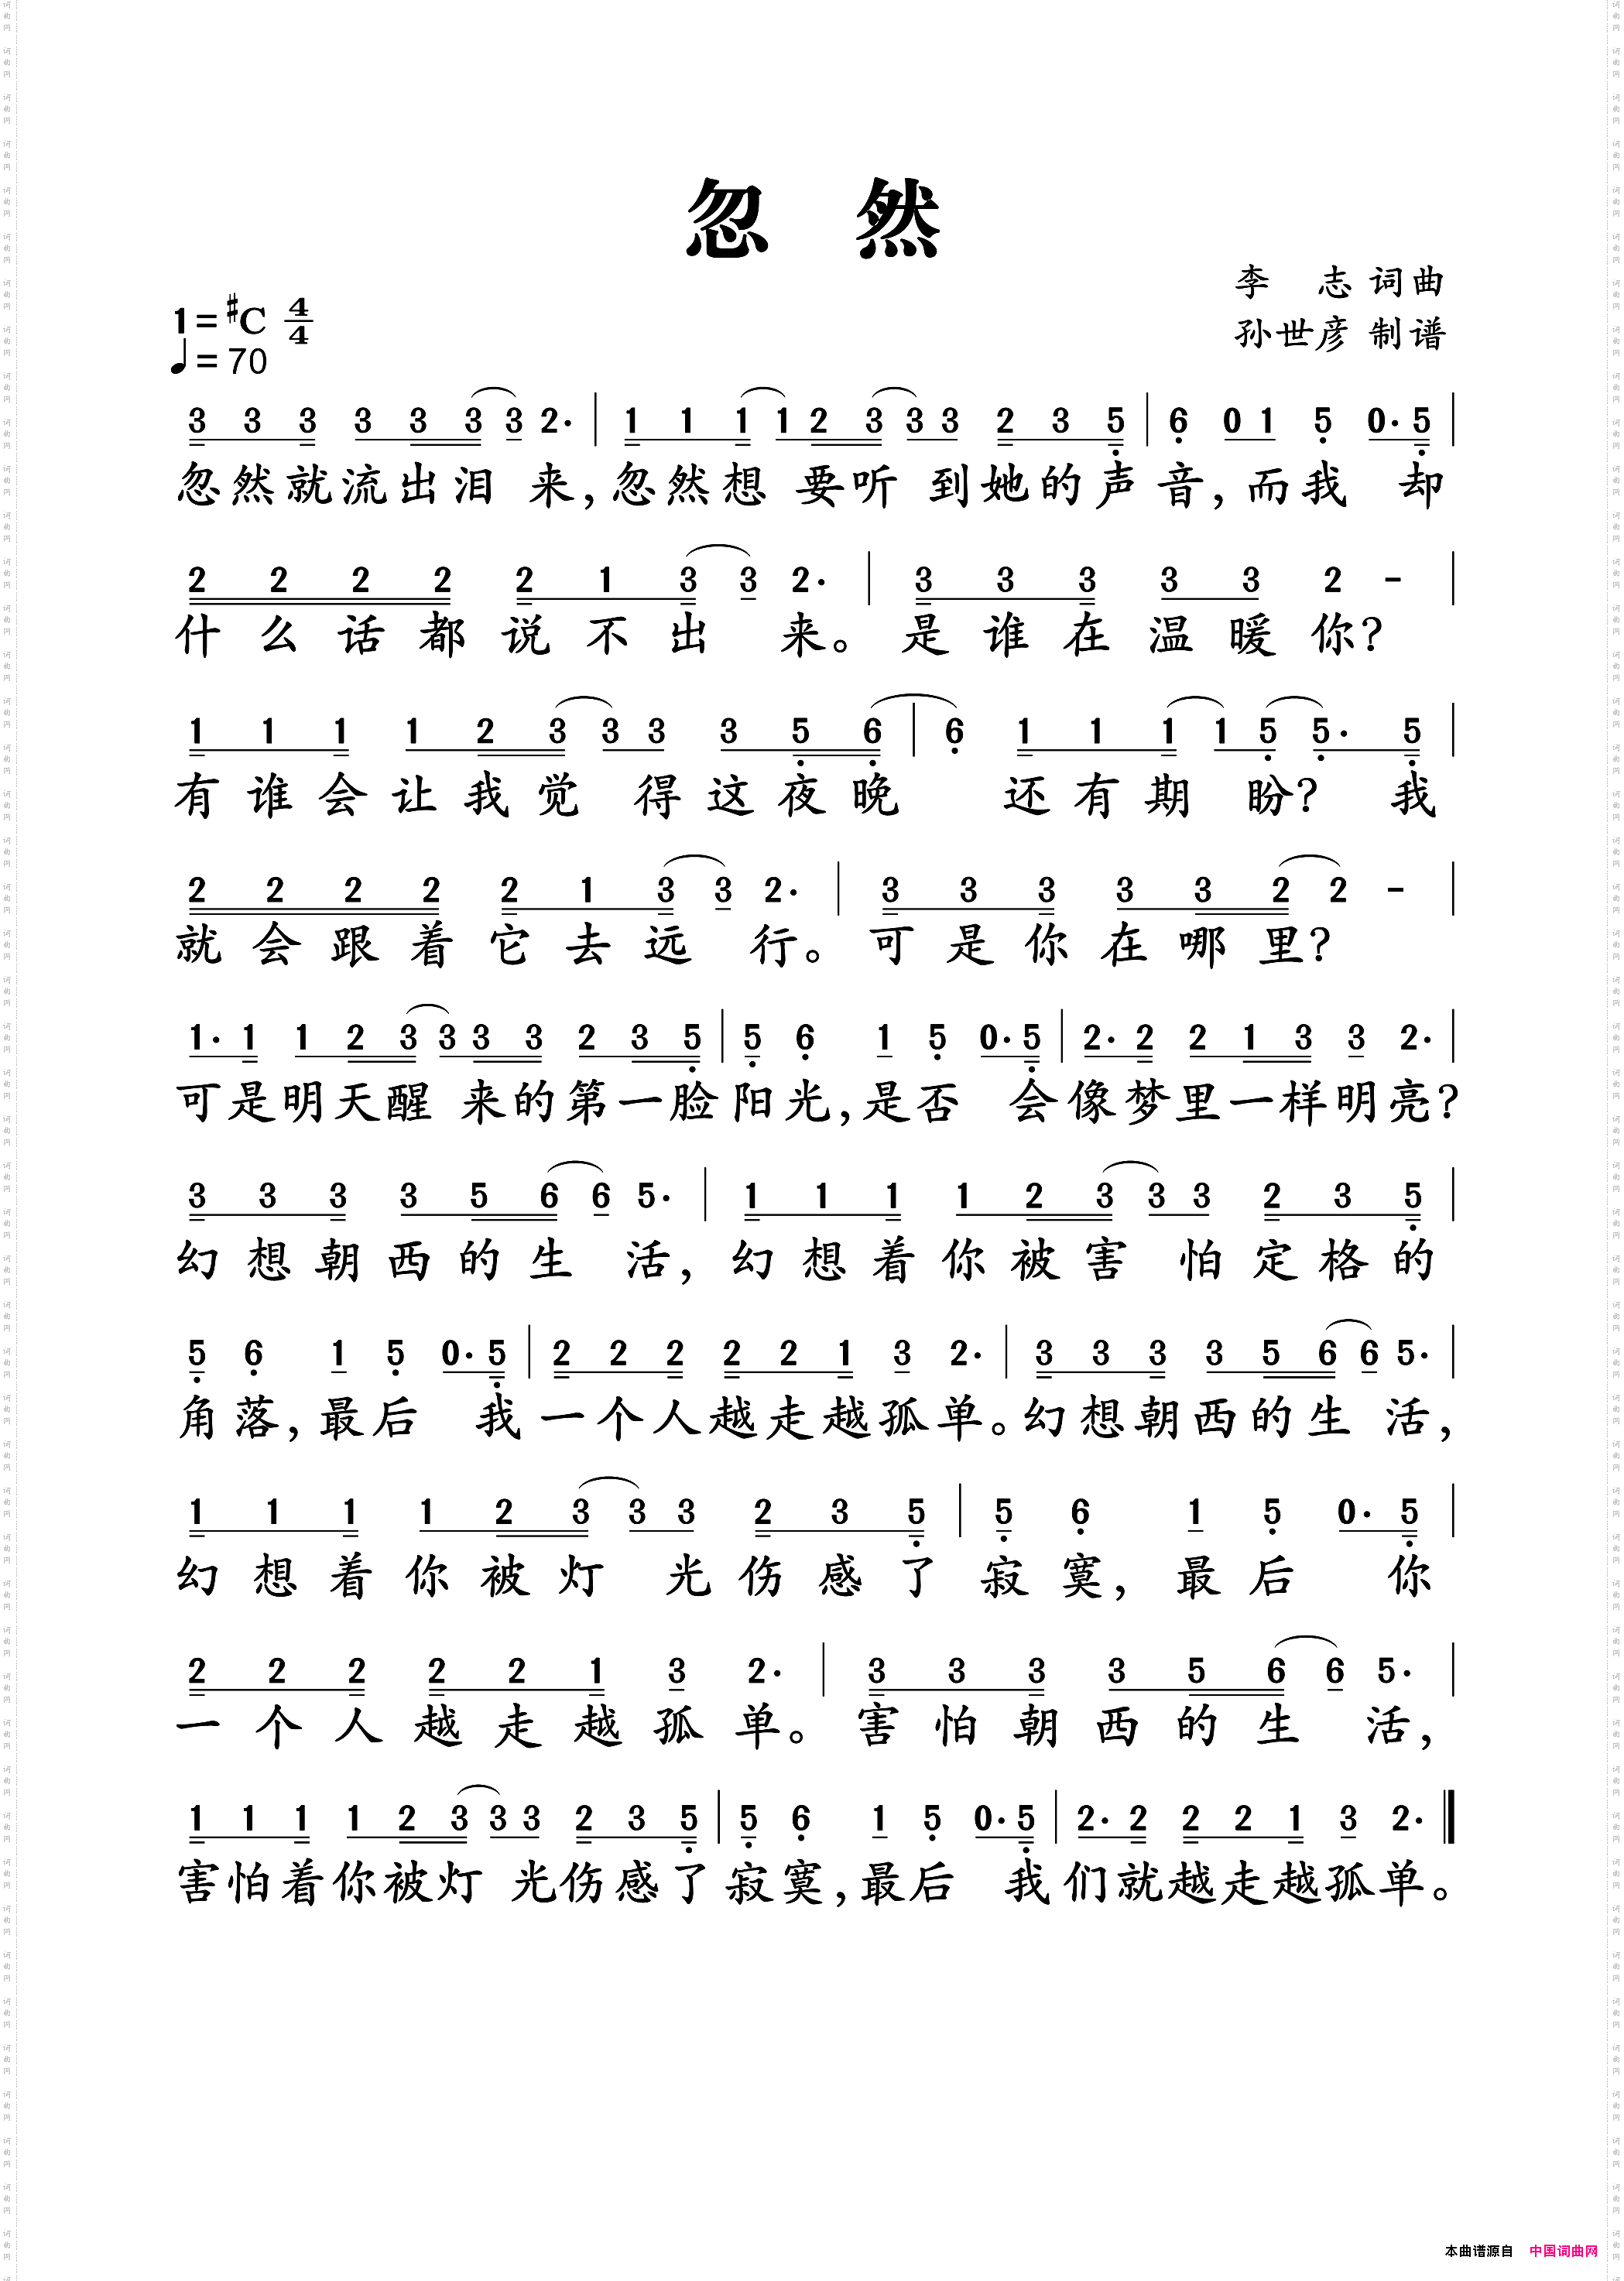 忽 然
李 志 词曲
孙世彦 制谱
1=#C 4/4
♩=70
3 3 3 3 3 3 3 2· | 1 1 1 1 2 3 3 3 2 3 5 | 6 0 1 5 0· 5 |
忽然就流出泪 来,忽然想 要听 到她的声 音,而我 却
2 2 2 2 2 1 3 3 2· | 3 3 3 3 3 2 - |
什么话都说不出 来。是谁在温暖你?
1 1 1 1 2 3 3 3 3 5 6 | 6 1 1 1 1 5 5· 5 |
有谁会让我觉 得这夜晚 还有期 盼? 我
2 2 2 2 2 1 3 3 2· | 3 3 3 3 3 2 2 - |
就会跟着它去远 行。可是你在哪里?
1· 1 1 2 3 3 3 3 2 3 5 | 5 6 1 5 0· 5 | 2· 2 2 1 3 3 2· |
可是明天醒 来的第一脸阳光,是否 会像梦里一样明亮?
3 3 3 3 5 6 6 5· | 1 1 1 1 2 3 3 3 2 3 5 |
幻想朝西的生 活,幻想着你被害 怕定格的
5 6 1 5 0· 5 | 2 2 2 2 2 1 3 2· | 3 3 3 3 5 6 6 5· |
角落,最后 我一个人越走越孤单。幻想朝西的生 活,
1 1 1 1 2 3 3 3 2 3 5 | 5 6 1 5 0· 5 |
幻想着你被灯 光伤感了寂寞,最后 你
2 2 2 2 2 1 3 2· | 3 3 3 3 5 6 6 5· |
一个人越走越孤单。害怕朝西的生 活,
1 1 1 1 2 3 3 3 2 3 5 | 5 6 1 5 0· 5 | 2· 2 2 2 1 3 2· ‖
害怕着你被灯 光伤感了寂寞,最后 我们就越走越孤单。
本曲谱源自 中国词曲网